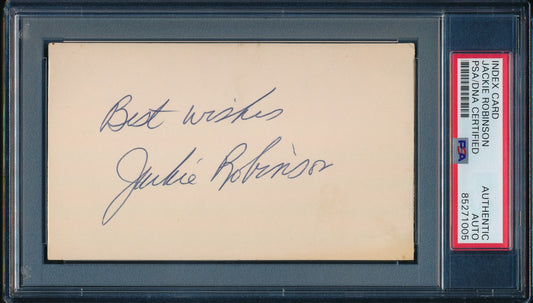 Best wishes
Jackie Robinson
INDEX CARD
JACKIE ROBINSON
PSA/DNA CERTIFIED
PSA
AUTHENTIC
AUTO
85271005